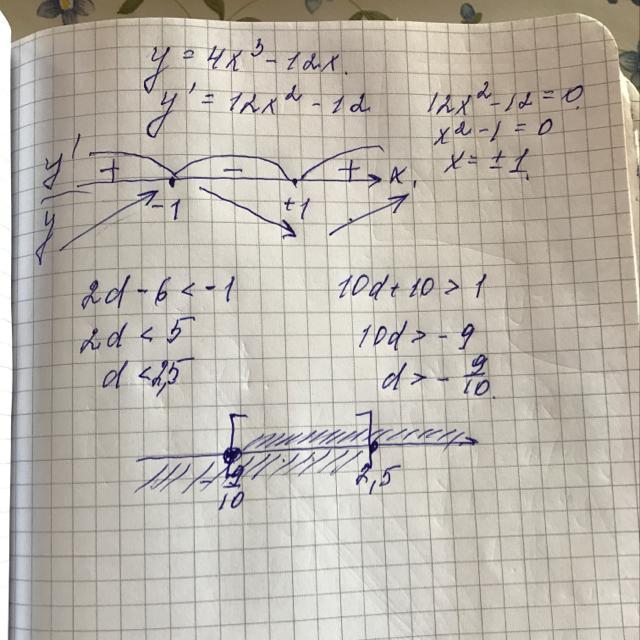 y = 4x³ - 12x.
y' = 12x² - 12
12x² - 12 = 0
x² - 1 = 0
x = ±1.
y' + - + x.
y -1 +1
2d - 6 < -1
2d < 5
d < 2,5
10d + 10 > 1
10d > - 9
d > - 9/10.
-9/10 2,5